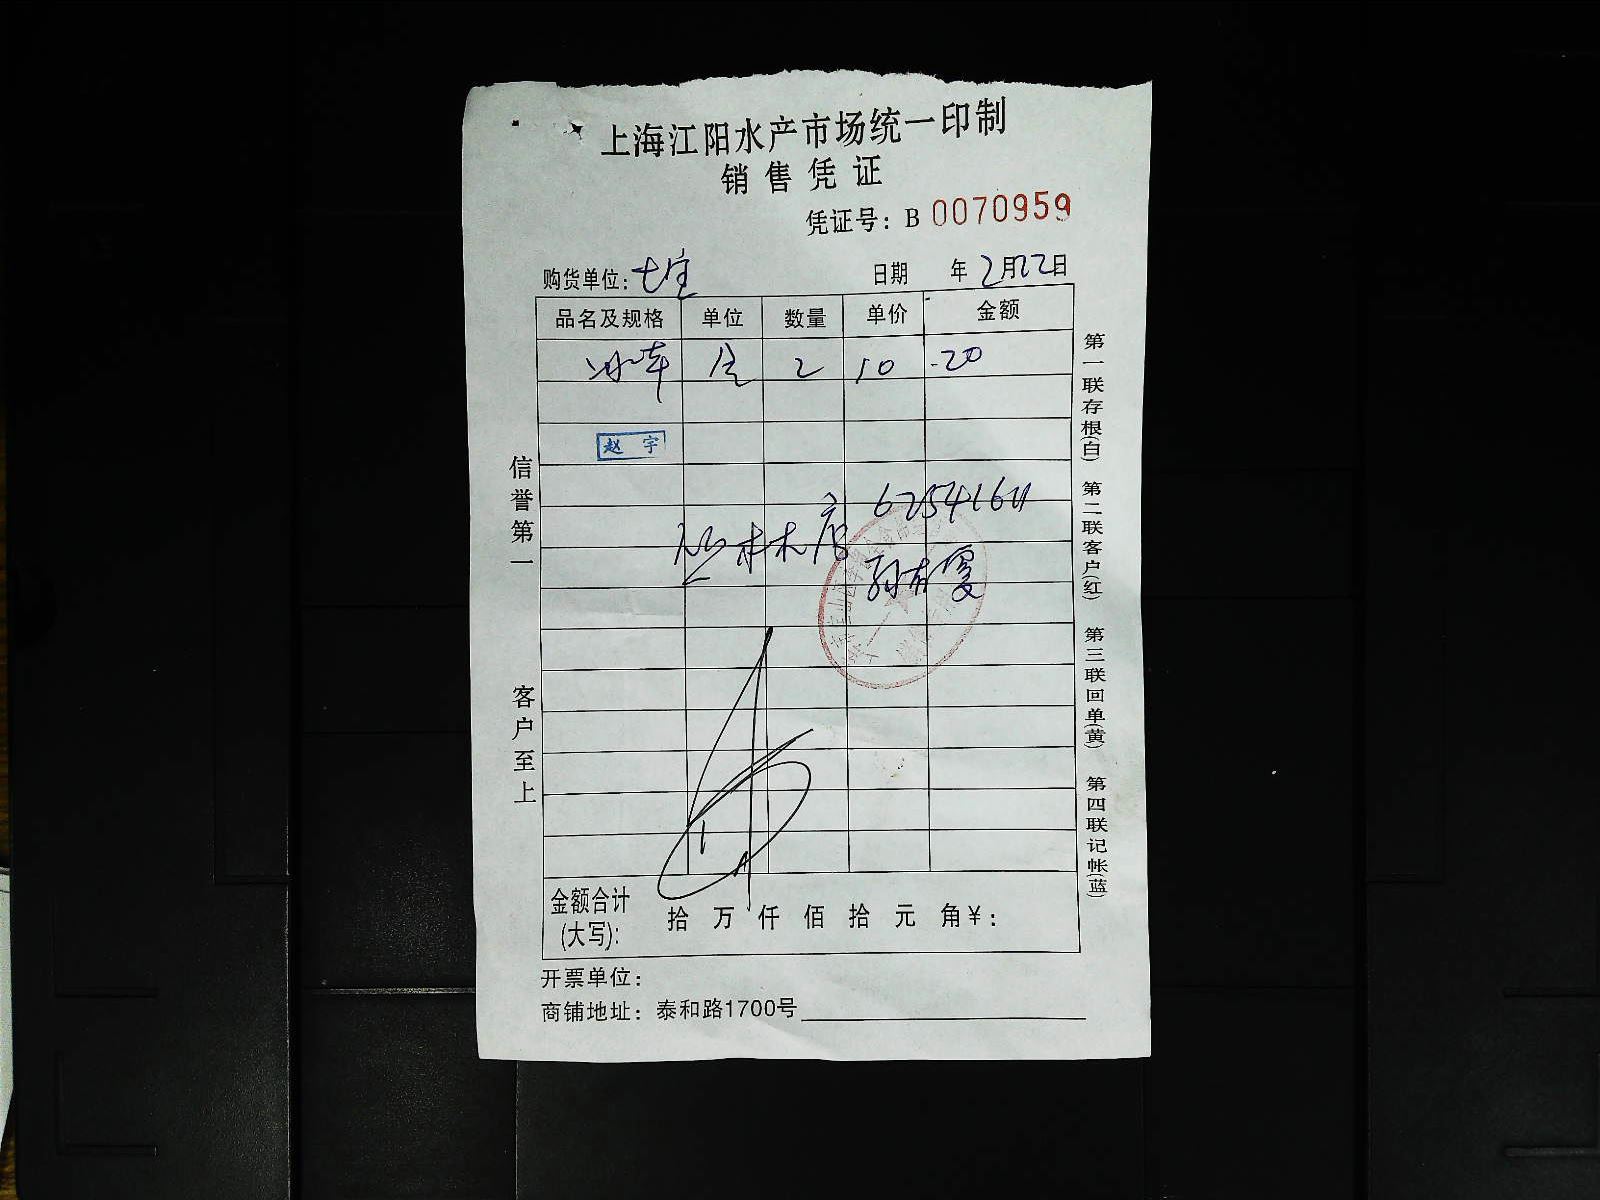 上海江阳水产市场统一印制
销售凭证
凭证号：B 0070959
购货单位：七宝 日期 年 2月22日
品名及规格 单位 数量 单价 金额
2 10 20
赵宇
62541611
金额合计(大写)： 拾 万 仟 佰 拾 元 角￥：
开票单位：
商铺地址：泰和路1700号
信誉第一 客户至上
第一联存根(白) 第二联客户(红) 第三联回单(黄) 第四联记帐(蓝)